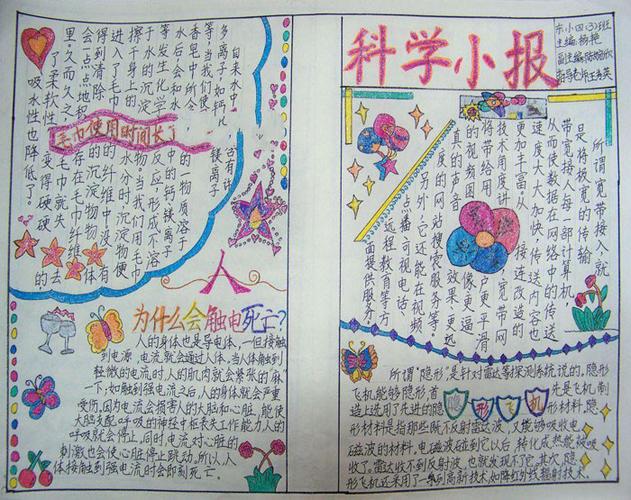 科学小报
东小四(3)班
主编:杨艳
所谓宽带接入就
是将极宽的传输
带宽接入每一部计算机
从而使数据在网络中的传送
速度大大加快,传送内容也
更加丰富。从 接连改造的
技术角度讲 宽带网
将带给用 户更平滑
的视频图 像更逼
真的声音 效果,更迅
速的网站搜索服务等,
另外,它还能在视频
点播、可视电话、
远程教育等方
面提供服务。
所谓“隐形”,是针对雷达等探测系统说的。隐形
飞机能够隐形,首 先是飞机制
造上选用了先进的隐 形材料。隐
隐形飞机
形材料是指那些既不反射雷达波,又能够吸收电
磁波的材料。电磁波碰到它以后转化成热能被吸
收了。雷达收不到反射波,也就发现不了它。其次,隐
形飞机还采用了一系列高新技术,如降红外线辐射技术。
自来水中,含有许
多离子,如钙 镁离子
等,当我们使
香皂中所含 的一物质溶于
水后,会和水 中的钙、镁离子
等发生化学 反应,形成不溶
于水的沉淀 物。当我们用毛巾
擦干身上的 水分时,沉淀物便
进入了毛巾 的纤维中,没有
得到清除 的沉淀物 体
会一点点地积 存在毛巾纤维
里。久而久之, 毛巾就失去
了柔软性, 变得硬硬的
吸水性也降低了。
毛巾使用时间长了
人
为什么会触电死亡?
人的身体也是导电体,一但接触
到电源,电流就会通过人体。当人体触到
轻微的电流时,人的肌肉就会紧张的“麻”
一下;如触到强电流之后,人的身体就会严重
受伤。因为电流会损害人的大脑和心脏,能使
大脑支配呼吸的神经中枢丧失工作能力,人的
呼吸就会停止,同时,电流对心脏的
刺激也会使心脏停止跳动。所以,人
体接触到强电流时会即刻死亡。